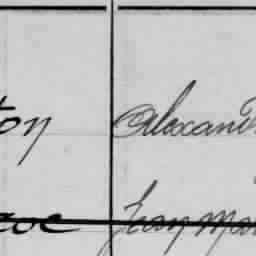 ton Alexand
ave Jean Mar